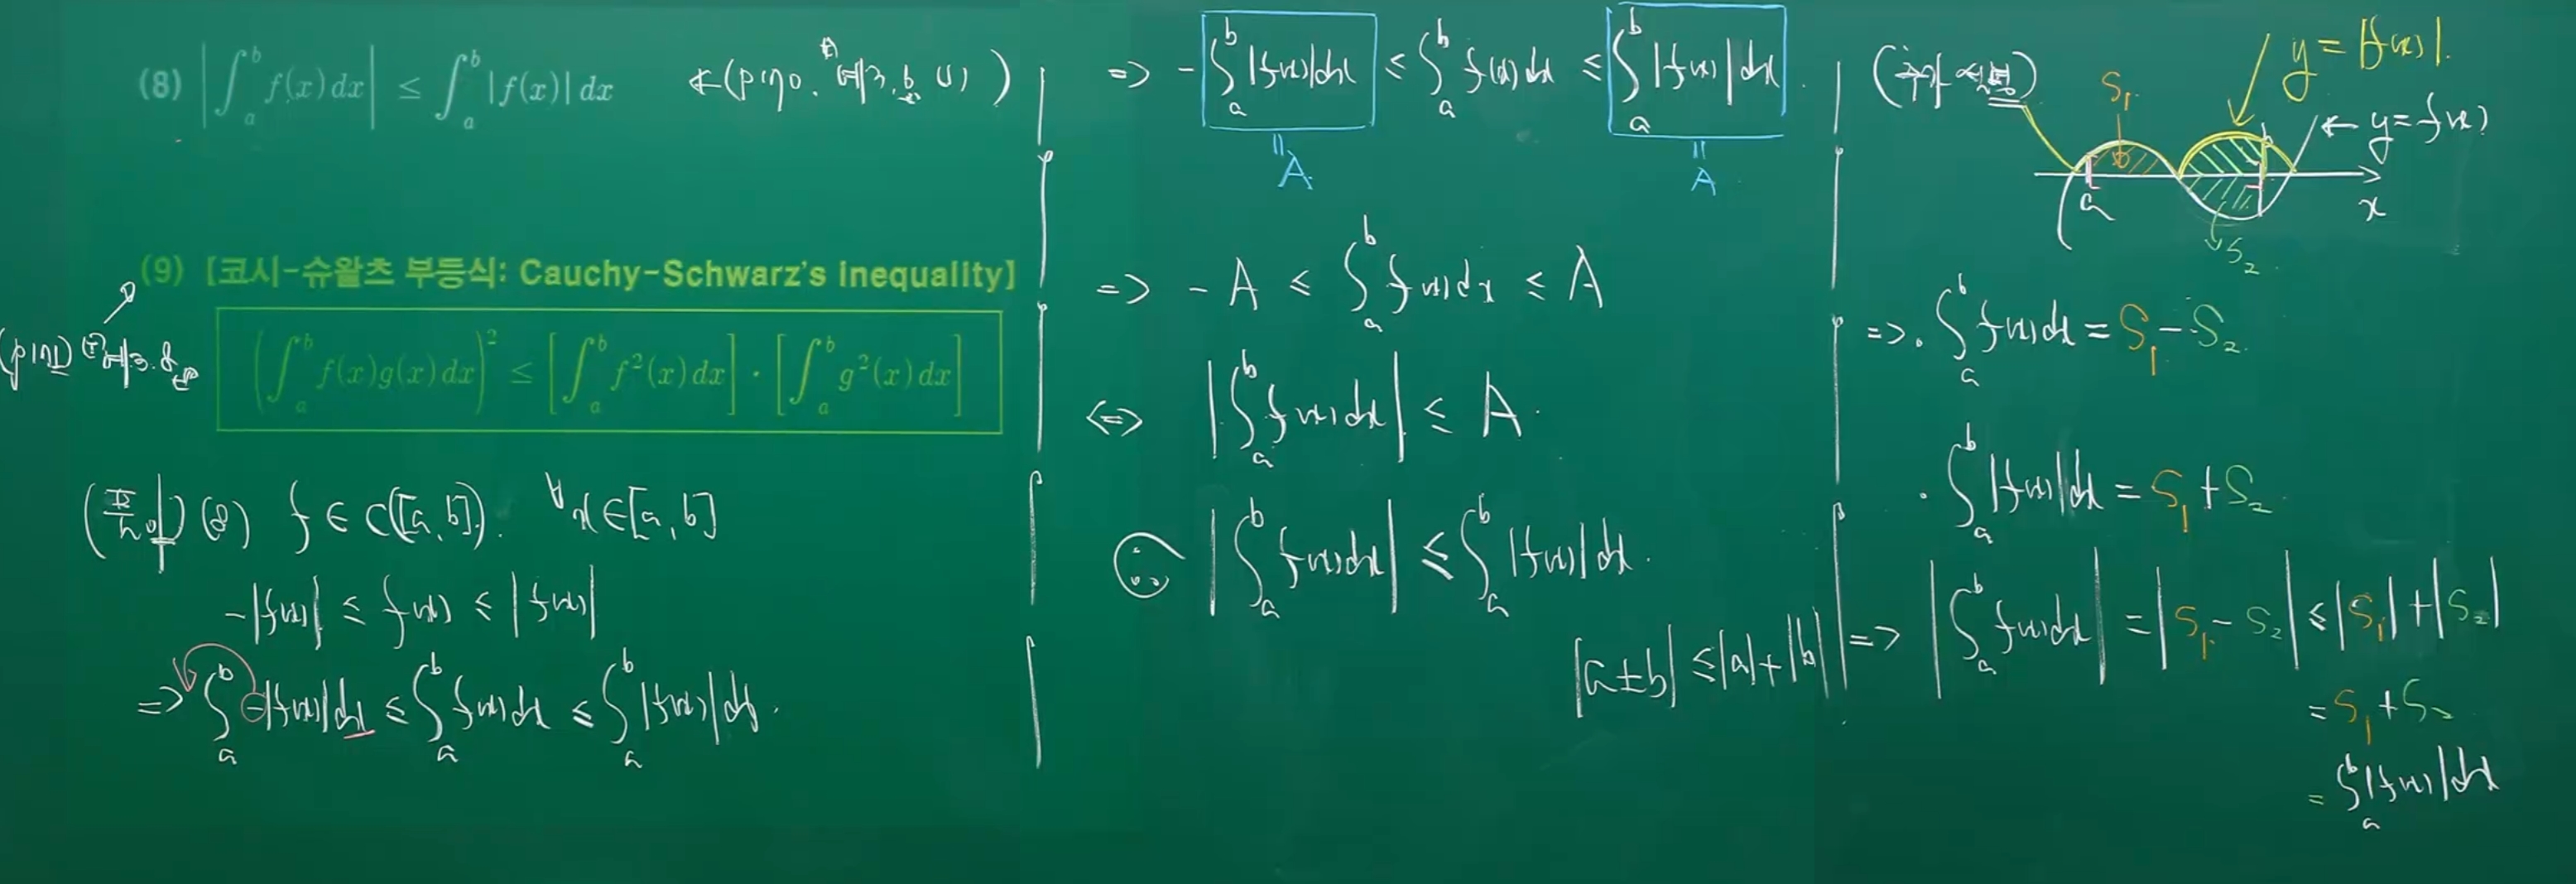 (8) |∫_a^b f(x) dx| ≤ ∫_a^b |f(x)| dx ←(p170. 예제3. b (1))
(9) [코시-슈왈츠 부등식: Cauchy-Schwarz's Inequality]
(∫_a^b f(x)g(x) dx)² ≤ [∫_a^b f²(x) dx] · [∫_a^b g²(x) dx]
(8) f ∈ C([a, b]). ∀x ∈ [a, b]
-|f(x)| ≤ f(x) ≤ |f(x)|
=> ∫_a^b -|f(x)|dx ≤ ∫_a^b f(x)dx ≤ ∫_a^b |f(x)|dx.
=> -∫_a^b |f(x)|dx ≤ ∫_a^b f(x)dx ≤ ∫_a^b |f(x)|dx.
= A = A
=> -A ≤ ∫_a^b f(x)dx ≤ A
<=> |∫_a^b f(x)dx| ≤ A.
∴ |∫_a^b f(x)dx| ≤ ∫_a^b |f(x)|dx.
|a±b| ≤ |a|+|b|
y=|f(x)|.
S₁
← y=f(x)
a b x
S₂
=> · ∫_a^b f(x)dx = S₁ - S₂.
· ∫_a^b |f(x)|dx = S₁ + S₂
=> |∫_a^b f(x)dx| = |S₁ - S₂| ≤ |S₁| + |S₂|
= S₁ + S₂
= ∫_a^b |f(x)|dx